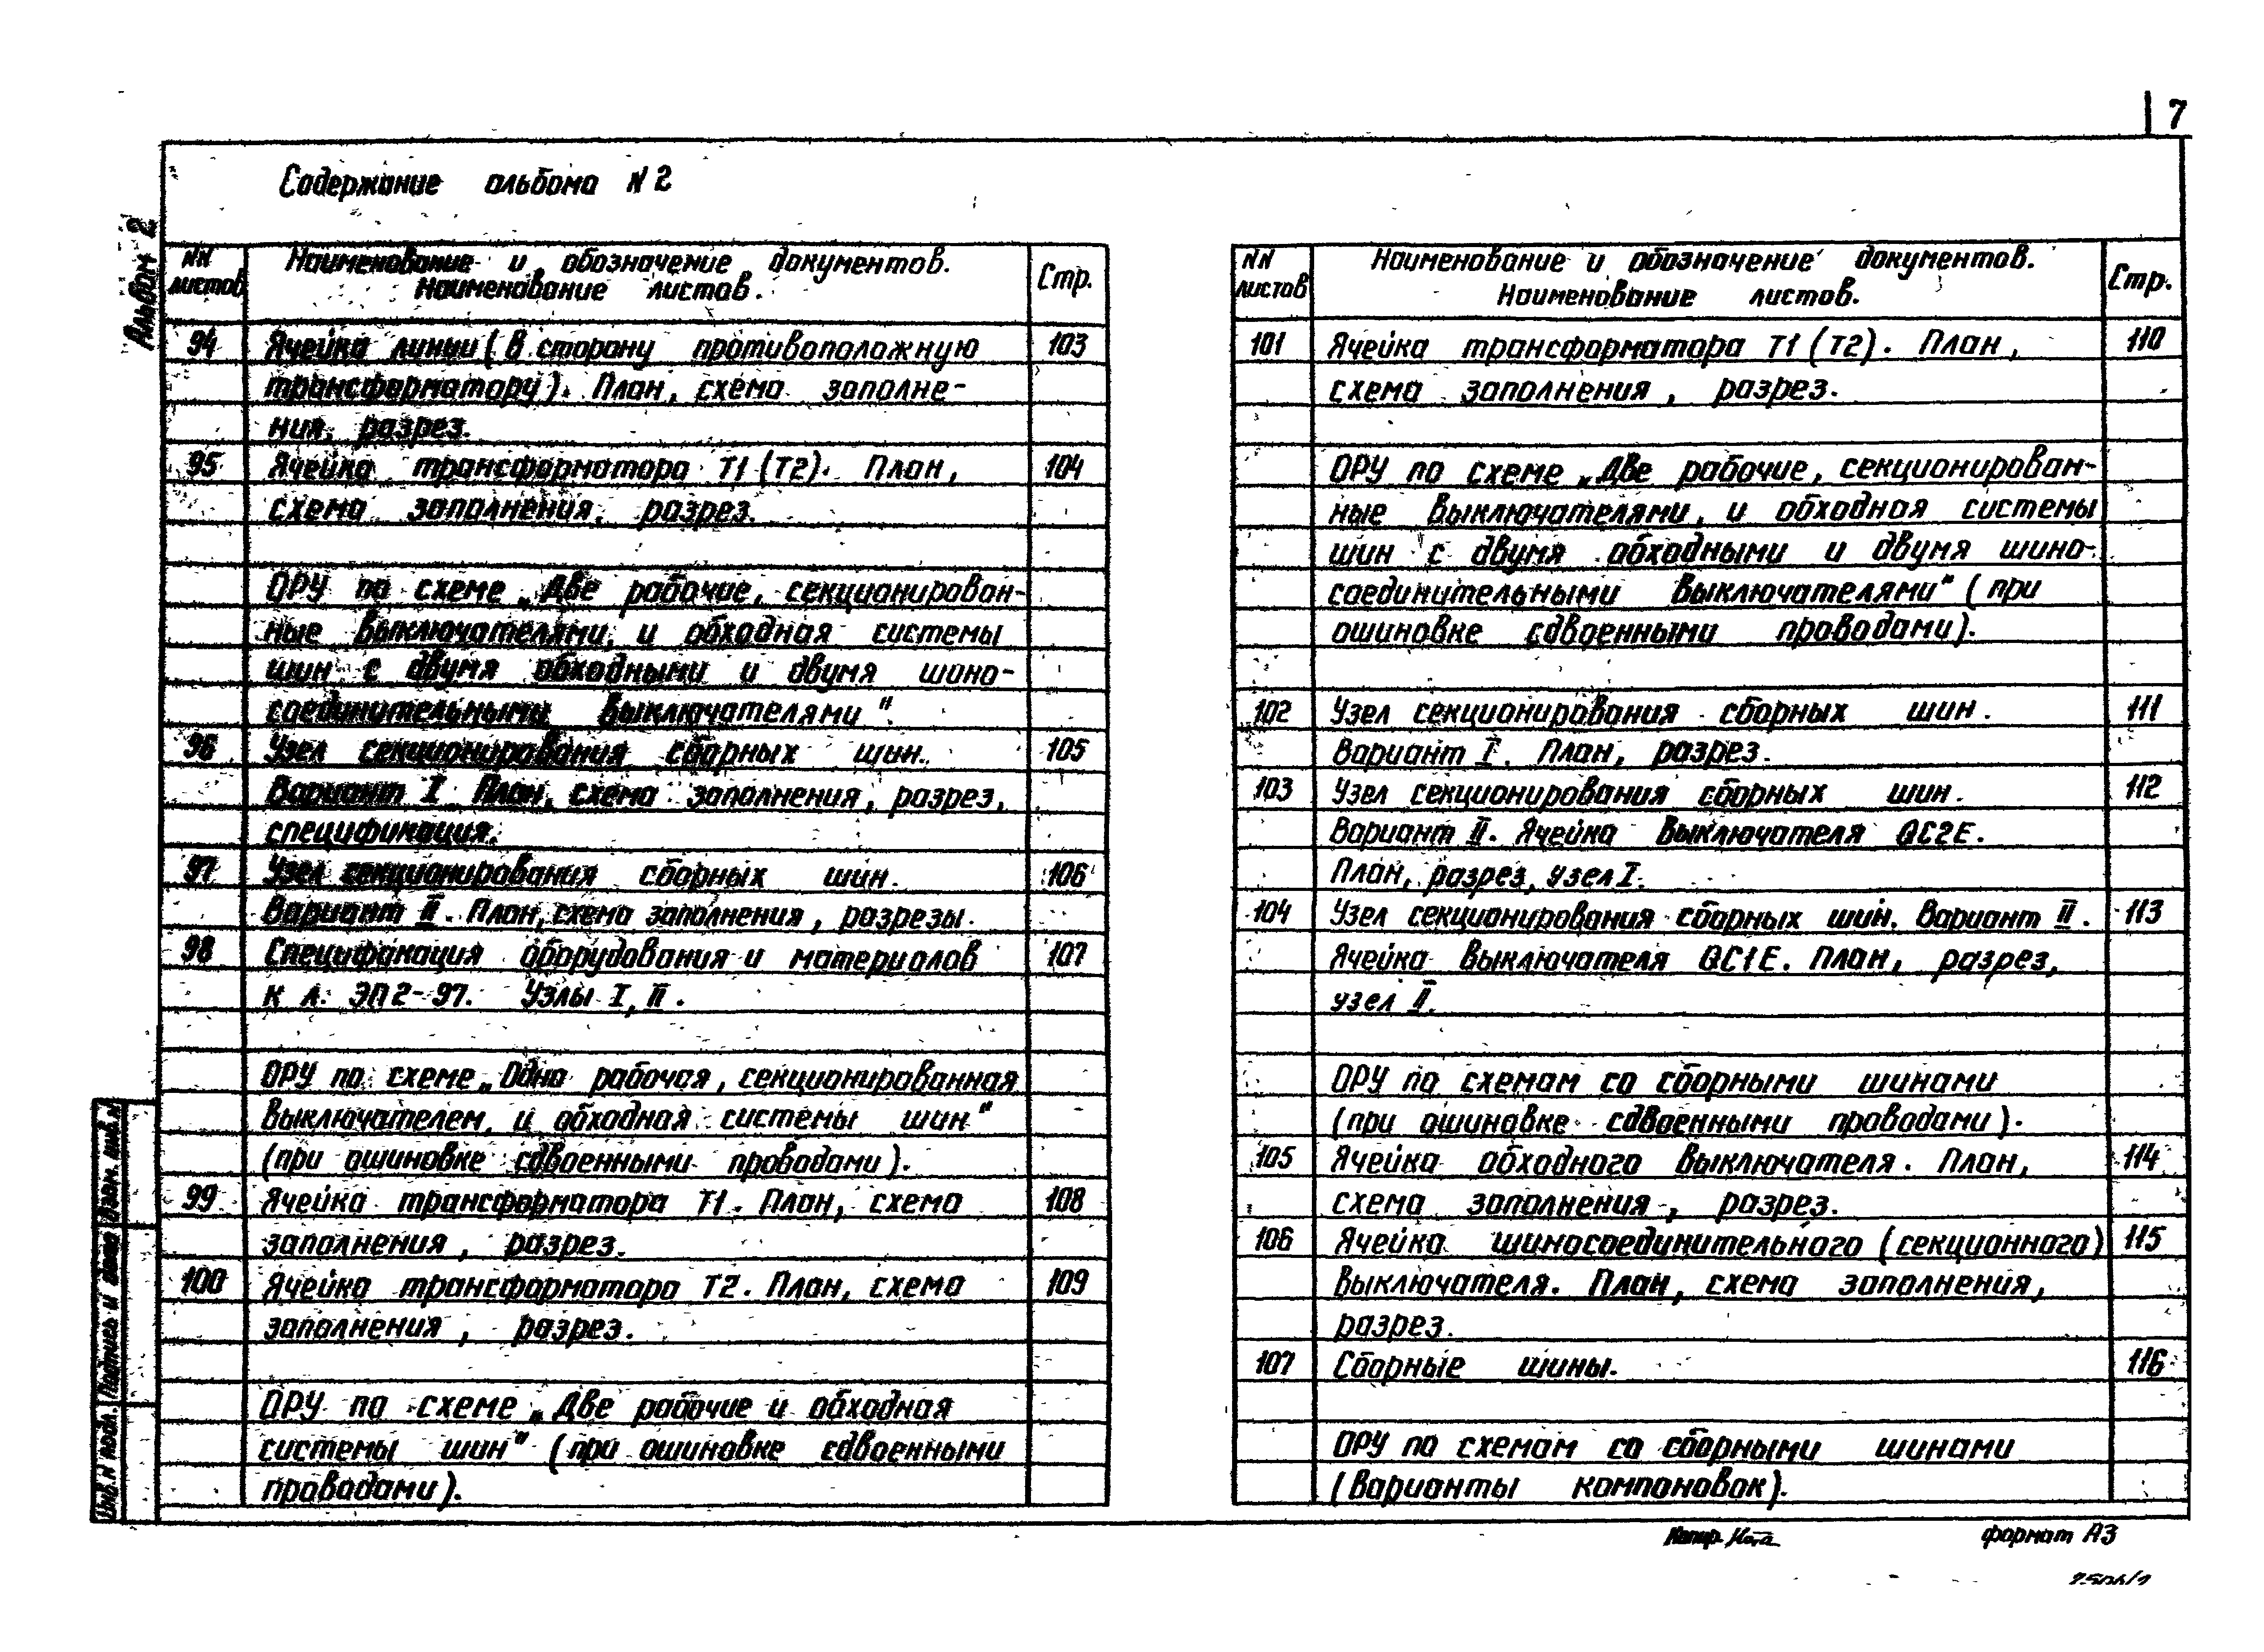 7
Содержание альбома N 2
Альбом 2
NN листов
Наименование и обозначение документов.
Наименование листов.
Стр.
94 Ячейка линии (в сторону противоположную 103
трансформатору). План, схема заполне-
ния, разрез.
95 Ячейка трансформатора Т1 (Т2). План, 104
схема заполнения, разрез.
ОРУ по схеме „Две рабочие, секционирован-
ные выключателями, и обходная системы
шин с двумя обходными и двумя шино-
соединительными выключателями".
96 Узел секционирования сборных шин. 105
Вариант I План, схема заполнения, разрез,
спецификация.
97 Узел секционирования сборных шин. 106
Вариант II. План, схема заполнения, разрезы.
98 Спецификация оборудования и материалов 107
к л. ЭП2-97. Узлы I, II.
ОРУ по схеме „Одна рабочая, секционированная
выключателем, и обходная системы шин"
(при ошиновке сдвоенными проводами).
99 Ячейка трансформатора Т1. План, схема 108
заполнения, разрез.
100 Ячейка трансформатора Т2. План, схема 109
заполнения, разрез.
ОРУ по схеме „Две рабочие и обходная
системы шин" (при ошиновке сдвоенными
проводами).
NN листов
Наименование и обозначение документов.
Наименование листов.
Стр.
101 Ячейка трансформатора Т1 (Т2). План, 110
схема заполнения, разрез.
ОРУ по схеме „Две рабочие, секционирован-
ные выключателями, и обходная системы
шин с двумя обходными и двумя шино-
соединительными выключателями" (при
ошиновке сдвоенными проводами).
102 Узел секционирования сборных шин. 111
Вариант I. План, разрез.
103 Узел секционирования сборных шин. 112
Вариант II. Ячейка выключателя QC2E.
План, разрез, узел I.
104 Узел секционирования сборных шин. Вариант II. 113
Ячейка выключателя QC1E. План, разрез,
узел II.
ОРУ по схемам со сборными шинами
(при ошиновке сдвоенными проводами).
105 Ячейка обходного выключателя. План, 114
схема заполнения, разрез.
106 Ячейка шиносоединительного (секционного) 115
выключателя. План, схема заполнения,
разрез.
107 Сборные шины. 116
ОРУ по схемам со сборными шинами
(варианты компоновок).
Инв. N подл. Подпись и дата Взам. инв. N
Копир.
формат А3